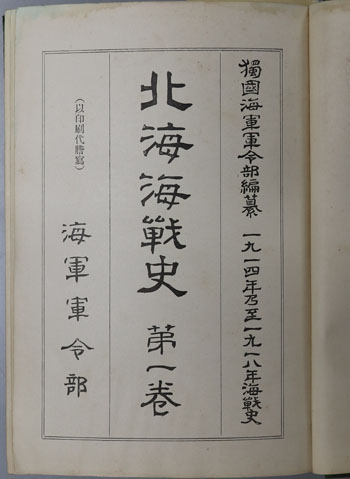 獨國海軍軍令部編纂 一九一四年乃至一九一八年海戰史
北海海戰史 第一卷
(以印刷代謄寫)
海軍軍令部